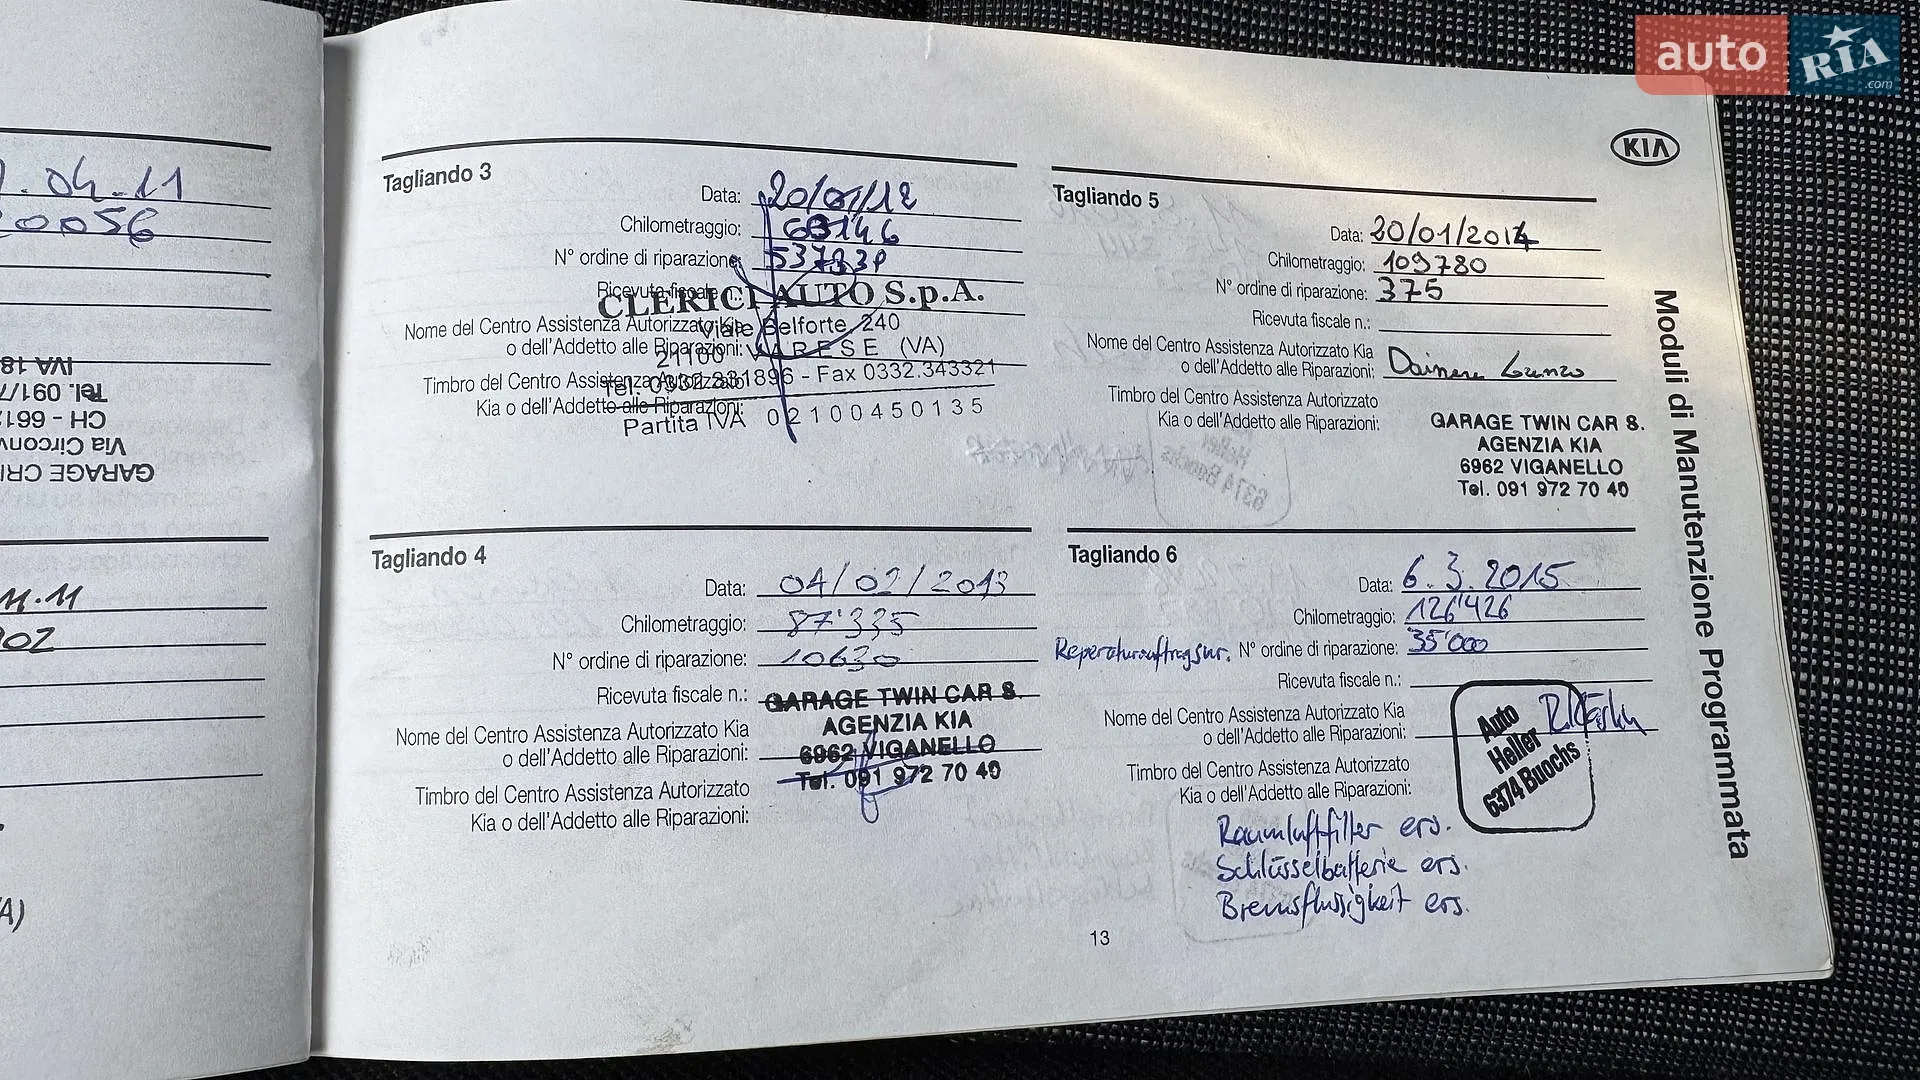 auto RIA.com
KIA
04.11
20056
IVA 18
Tel. 091/7
CH - 661
Via Circonv
GARAGE CRI
11.11
902
A)
Tagliando 3
Data: 20/01/12
Chilometraggio: 63146
N° ordine di riparazione:
Ricevuta fiscale n.:
Nome del Centro Assistenza Autorizzato Kia
o dell'Addetto alle Riparazioni:
Timbro del Centro Assistenza Autorizzato
Kia o dell'Addetto alle Riparazioni:
CLERICI AUTO S.p.A.
Viale Belforte, 240
21100 VARESE (VA)
Tel. 0332.331896 - Fax 0332.343321
Partita IVA 02100450135
Tagliando 4
Data: 04/02/2013
Chilometraggio: 87'335
N° ordine di riparazione: 10630
Ricevuta fiscale n.:
Nome del Centro Assistenza Autorizzato Kia
o dell'Addetto alle Riparazioni:
Timbro del Centro Assistenza Autorizzato
Kia o dell'Addetto alle Riparazioni:
GARAGE TWIN CAR S.
AGENZIA KIA
6962 VIGANELLO
Tel. 091 972 70 40
Tagliando 5
Data: 20/01/2014
Chilometraggio: 109780
N° ordine di riparazione: 375
Ricevuta fiscale n.:
Nome del Centro Assistenza Autorizzato Kia
o dell'Addetto alle Riparazioni:
Timbro del Centro Assistenza Autorizzato
Kia o dell'Addetto alle Riparazioni:
GARAGE TWIN CAR S.
AGENZIA KIA
6962 VIGANELLO
Tel. 091 972 70 40
Tagliando 6
Data: 6.3.2015
Chilometraggio: 126'426
Reperaturauftragsnr. N° ordine di riparazione: 35'000
Ricevuta fiscale n.:
Nome del Centro Assistenza Autorizzato Kia
o dell'Addetto alle Riparazioni:
Timbro del Centro Assistenza Autorizzato
Kia o dell'Addetto alle Riparazioni:
Auto
Heller
6374 Buochs
Raumluftfilter ers.
Schlüsselbatterie ers.
Bremsflüssigkeit ers.
13
Moduli di Manutenzione Programmata